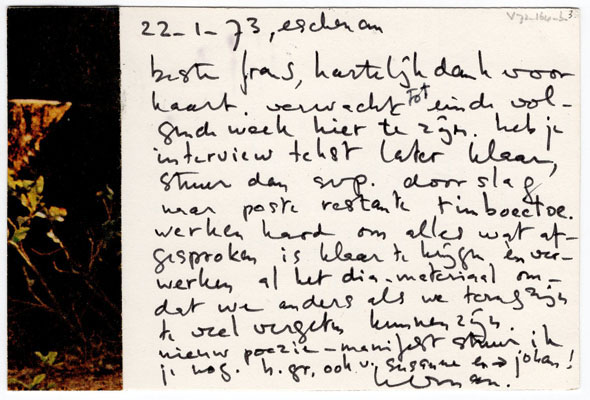 22-1-73, eschenau
beste frans, hartelijk dank voor
kaart. verwacht tot einde vol-
gende week hier te zijn. heb je
interview tekst later klaar,
stuur dan svp. doorslag
naar poste restante timboectoe.
werken hard om alles wat af-
gesproken is klaar te krijgen en ver-
werken al het dia-materiaal om-
dat we anders als we terug zijn
te veel vergeten kunnen zijn.
nieuw poezie-manifest stuur ik
je nog. h.gr. ook v. susanne en → johan!
herman.